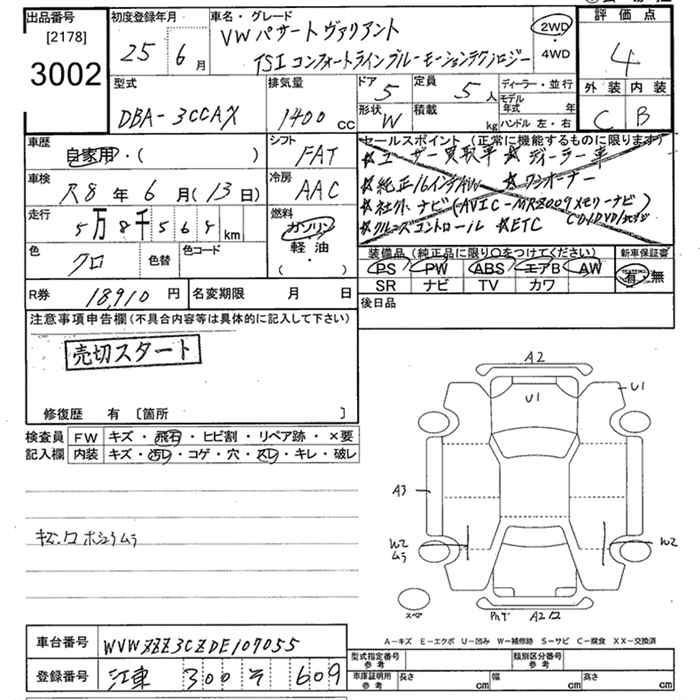 出品番号 初度登録年月 車名・グレード 評価点
[2178] 25年 6月 VW パサート ヴァリアント 2WD・4WD 4
3002 TSI コンフォートライン ブルーモーションテクノロジー
型式 排気量 ドア 5 定員 5人 ディーラー・並行 外装 内装
DBA-3CCAX 1400cc 形状 W 積載 kg モデル年式 年 C B
ハンドル 左・右
車歴 シフト セールスポイント(正常に機能するものに限ります)
自家用・( ) FAT ☆ユーザー買取車 ☆ディーラー車
車検 冷房 ☆純正16インチAW ☆ワンオーナー
R8年 6月(13日) AAC ☆社外ナビ(AVIC-MRZ009メモリーナビ)
走行 燃料 CD/DVD/
5万8千565km ガソリン・軽・油・( ) ☆クルーズコントロール ☆ETC
色 クロ 色替 色コード 装備品(純正品に限り〇をつけてください) 新車保証書
PS PW ABS エアB AW 有・無
SR ナビ TV カワ
R券 18,910円 名変期限 月 日 後日品
注意事項申告欄(不具合内容等は具体的に記入して下さい)
売切スタート
修復歴 有 〔箇所 〕
A2
U1 U1
検査員 FW キズ・飛石・ヒビ割・リペア跡・×要
記入欄 内装 キズ・汚レ・コゲ・穴・スレ・キレ・破レ
A3
キズ.クロ ホシュウムラ
W2 ムラ W2
スペア A2
A-キズ E-エクボ U-凹み W-補修跡 S-サビ C-腐食 XX-交換済
車台番号 WVWZZZ3CZDE107055
型式指定番号 参考 類別区分番号 参考
登録番号 江東 300 そ 609
車庫証明用 参考 長さ cm 幅 cm 高さ cm